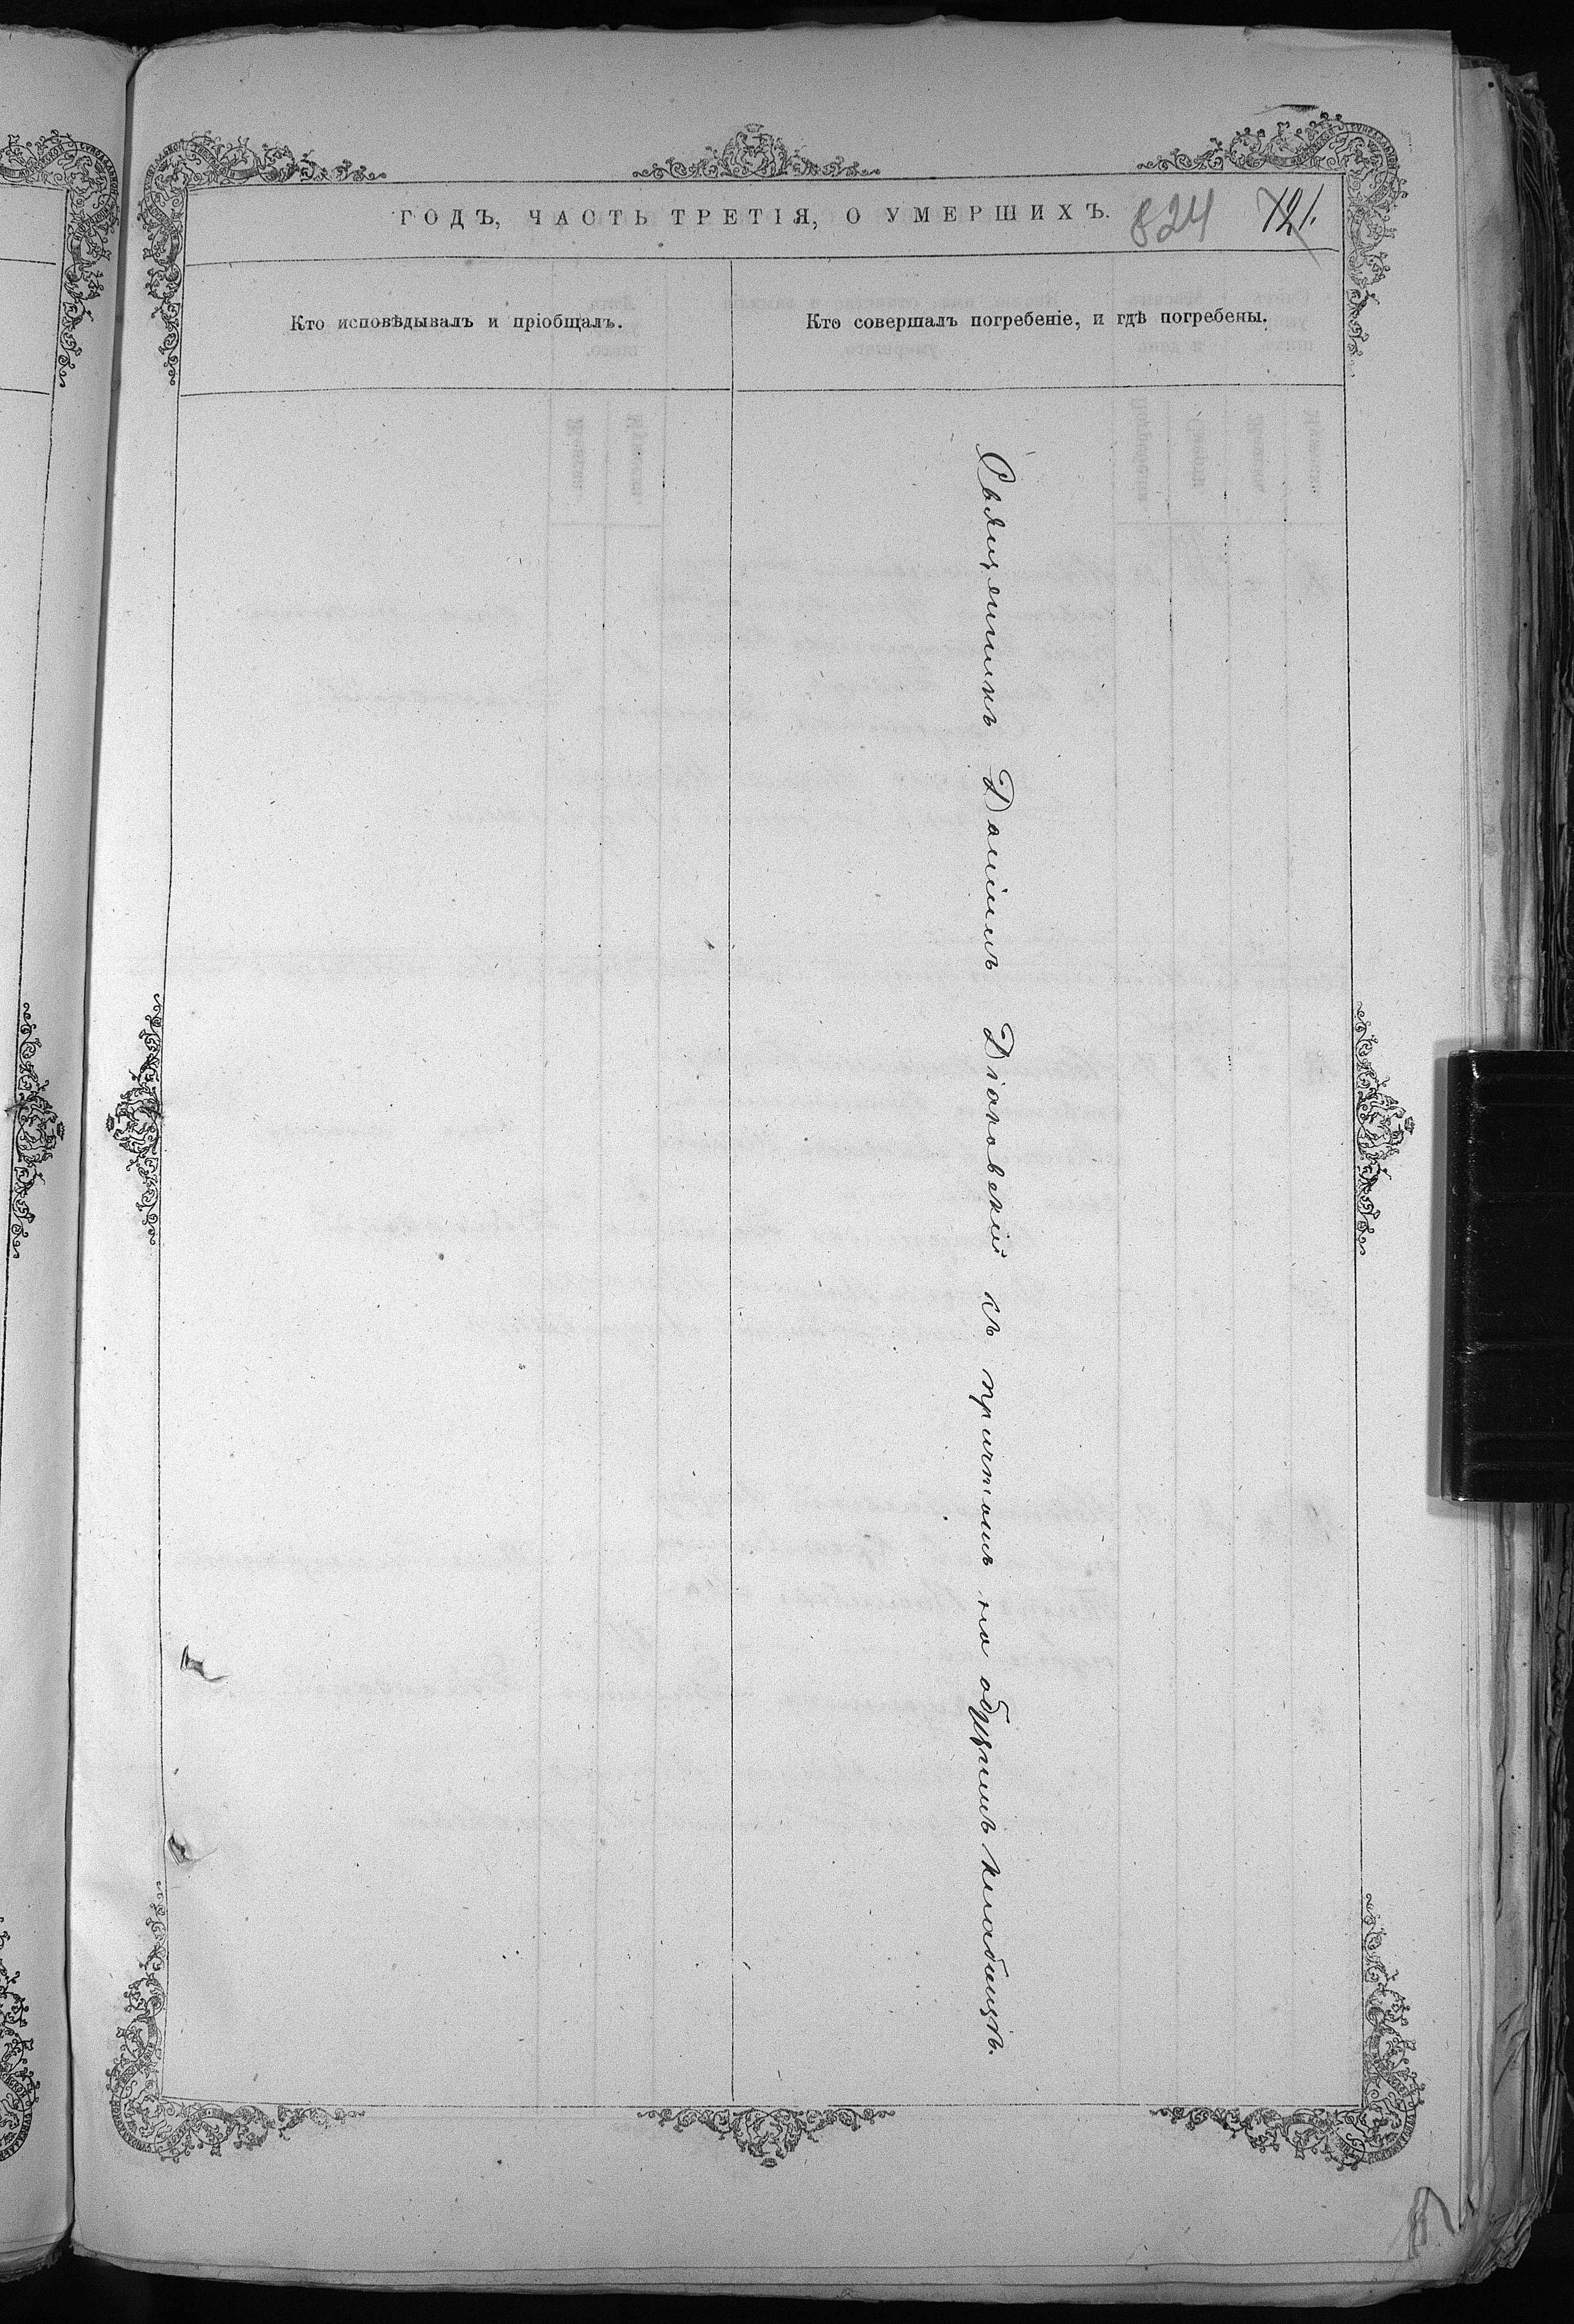 ГОДЪ, ЧАСТЬ ТРЕТІЯ, О УМЕРШИХЪ.
824 121.
Кто исповѣдывалъ и пріобщалъ.
Кто совершалъ погребеніе, и гдѣ погребены.
Священникъ Даніилъ Діаковскій съ причтомъ на общемъ кладбищѣ.